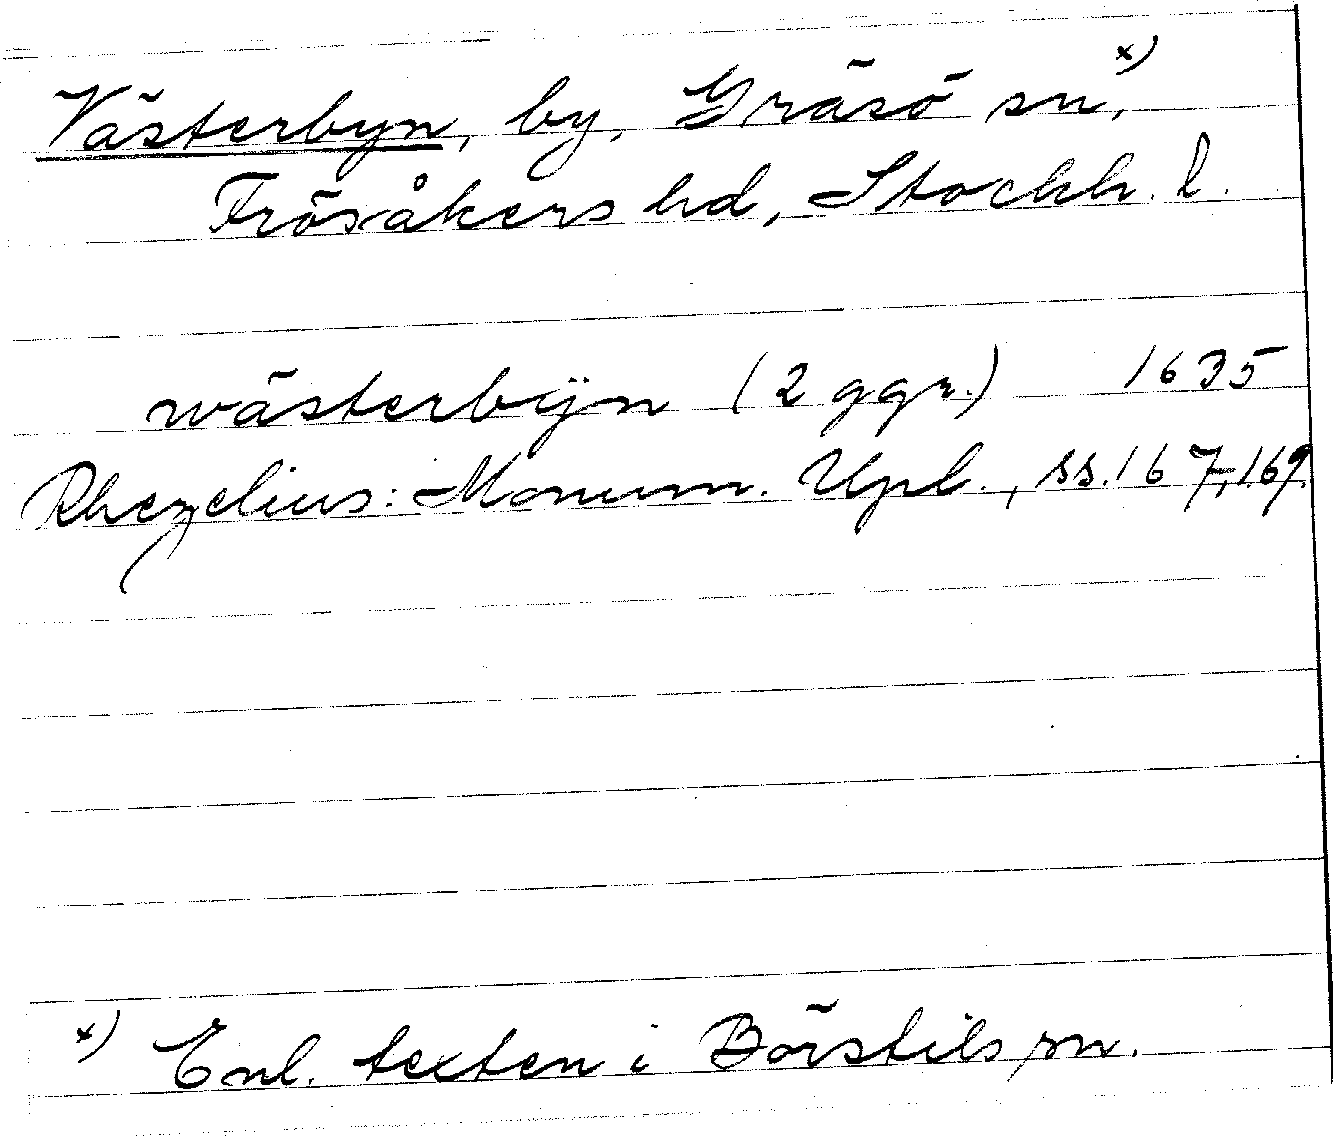 Västerbyn, by, Gräsö sn,x)
Frösåkers hd, Stockh. l.
wästerbÿn (2 ggr.) 1635
Rhezelius: Monum. Upl., ss. 167, 169.
x) Enl. texten i Börstils sn.